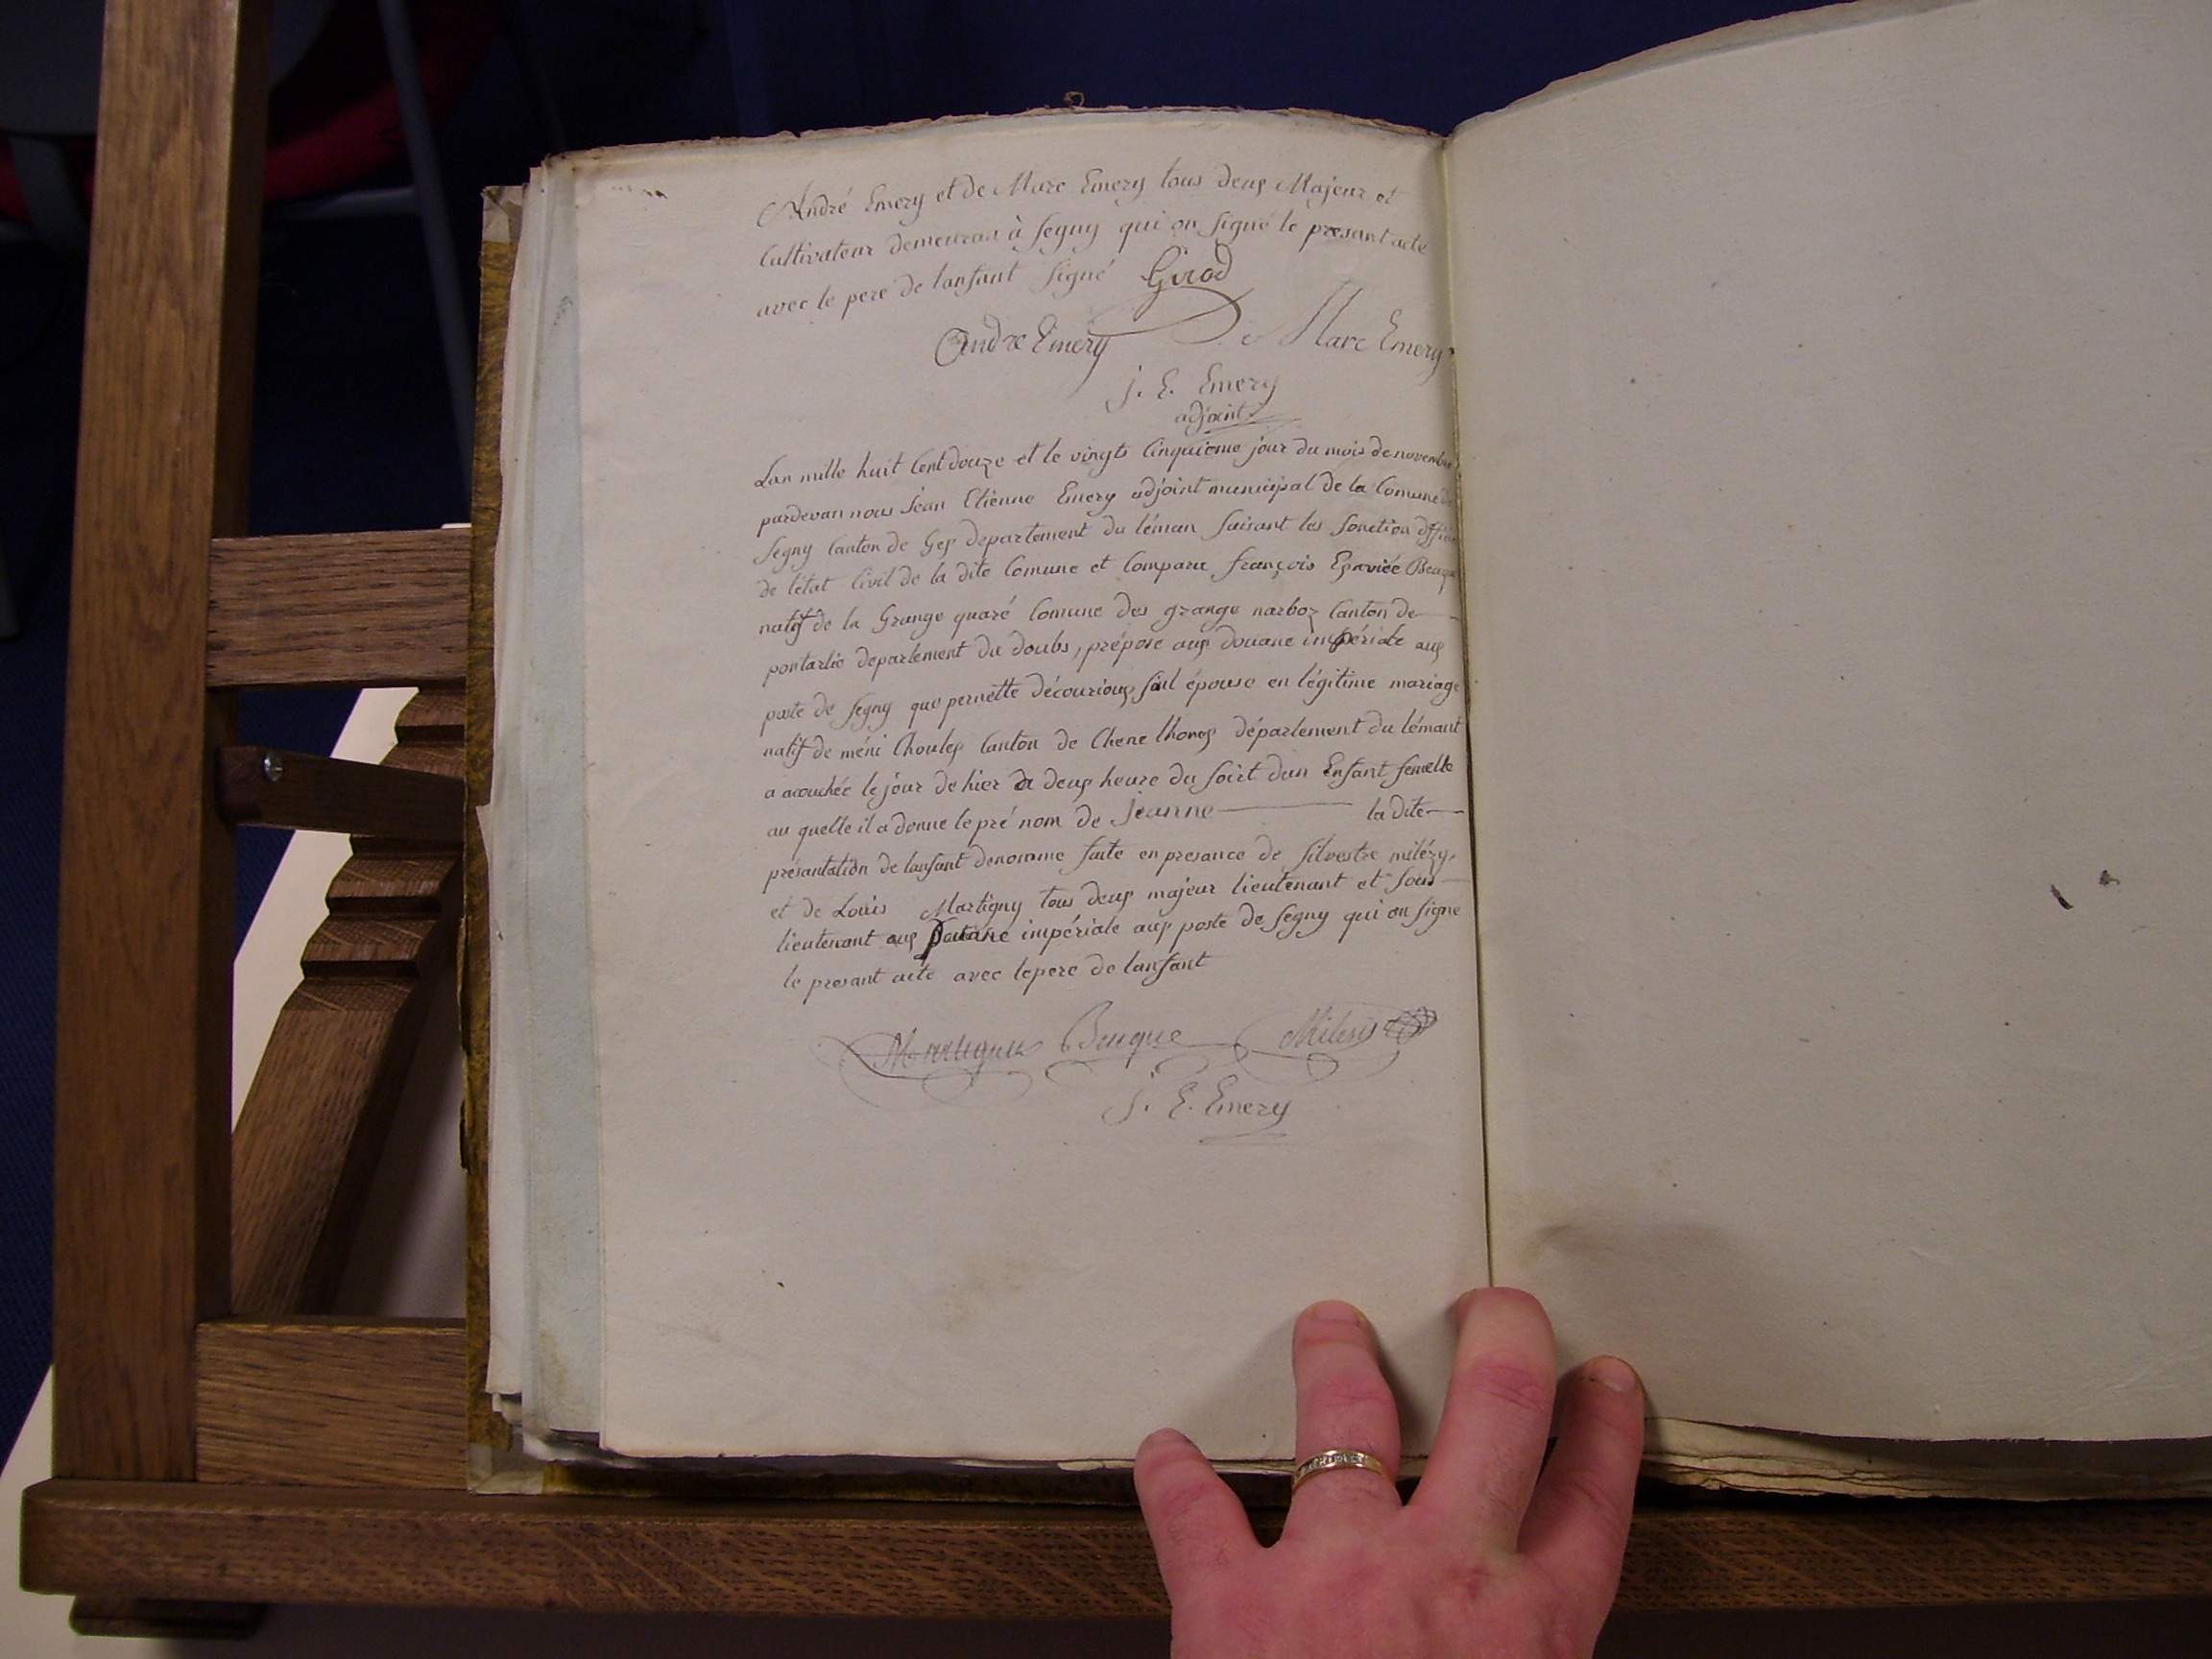 André Emery et de Marc Emery tous deux Majeur et
Cultivateur demeuran à Segny qui on signé le presant acte
avec le pere de lanfant signé Girod
andre Emery Marc Emery
j. E. Emery
adjoint
Lan mille huit Cent douze et le vingts Cinquieme jour du mois de novembre
pardevan nous Jean Etienne Emery adjoint municipal de la Comune de
Segny Canton de Gex departement du léman faisant les fonction
de létat Civil de la dite Comune et Comparu françois Exaviée
natif de la Grange quaré Comune des grange narboz Canton de
pontarlié departement du doubs, prépose aux douane impériale aux
poste de Segny que pernette décourioux, épouse en légitime mariage
natif de méni Choulex Canton de Chene département du lémant
a acouchée le jour de hier à deux heure du soirt dun Enfant femelle
au quelle il a donne le pré nom de jeanne la dite
présantation de lanfant denomme faite en presance de Silvestre milézy
et de Louis Martigny tous deux majeur lieutenant et sous
lieutenant aux Douane impériale aux poste de Segny qui on signe
le presant acte avec le pere de lanfant
Beuque Milesi
j. E. Emery